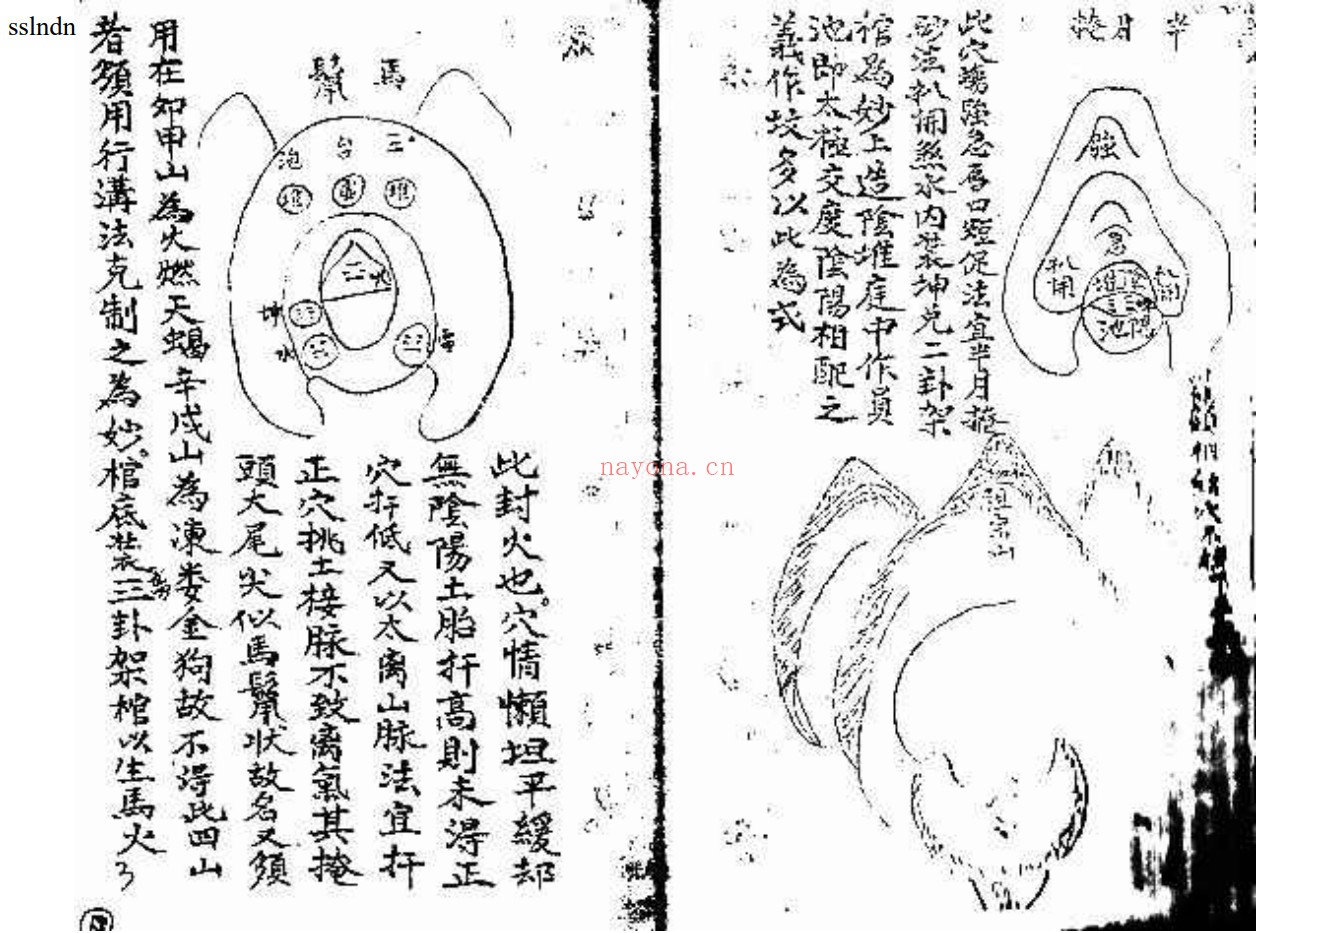 sslndn
半月掩
此穴嫋強急唇口短促法宜半月掩
砂法扒開煞水內裝坤兑二卦架
棺為妙上造陰堆庭中作員
池即太極交度陰陽相配之
義作坟多以此為式
強
急
扒開
扒開
池陽
祖宗山
nayona.cn
馬鬣
三台泡
坤
水
此封火也。穴情懶坦平緩却
無陰陽土胎扦高則未得正
穴扦低又以太离山脉法宜扦
正穴挑土接脉不致离氣其掩
頭大尾尖似馬鬣状故名又須
用在如甲山為火燃天蝎辛戌山為凍娄金狗故不得此四山
者須用行溝法克制之為妙。棺底裝三卦架棺以生馬火